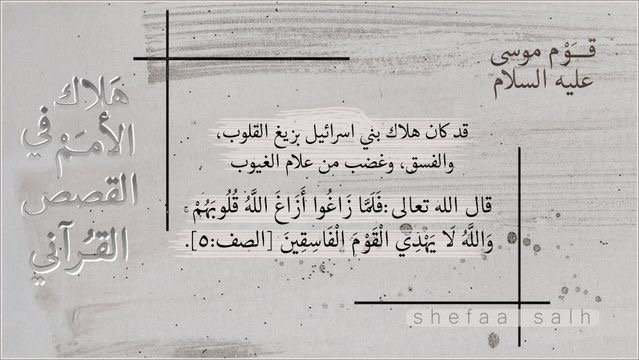 قَوْم موسى
عليه السلام
هَلاك
الأمَمْ في
القصص
القُرآني
قد كان هلاك بني اسرائيل بزيغ القلوب،
والفسق، وغضب من علام الغيوب
قال الله تعالى:فَلَمَّا زَاغُوا أَزَاغَ اللَّهُ قُلُوبَهُمْ ۚ
وَاللَّهُ لَا يَهْدِي الْقَوْمَ الْفَاسِقِينَ [الصف:٥].
shefaa salh